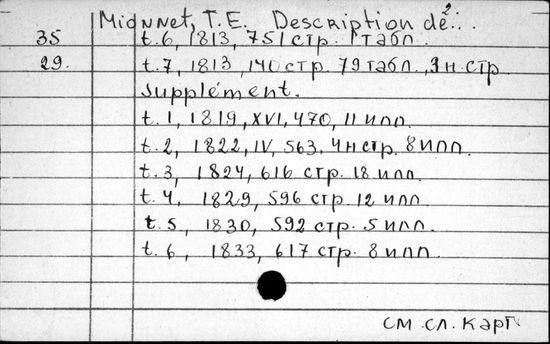 2.
Mionnet, T. E. Description de...
35 t. 6, 1813, 751 стр. 1 табл.
29. t. 7, 1813, 140 стр. 79 табл., 3 н стр
Supplément.
t. 1, 1819, XVI, 470, 11 илл.
t. 2, 1822, IV, 563, 4 н стр. 8 илл.
t. 3, 1824, 616 стр. 18 илл.
t. 4, 1829, 596 стр. 12 илл
t. 5, 1830, 592 стр. 5 илл.
t. 6, 1833, 617 стр. 8 илл.
см. сл. карт